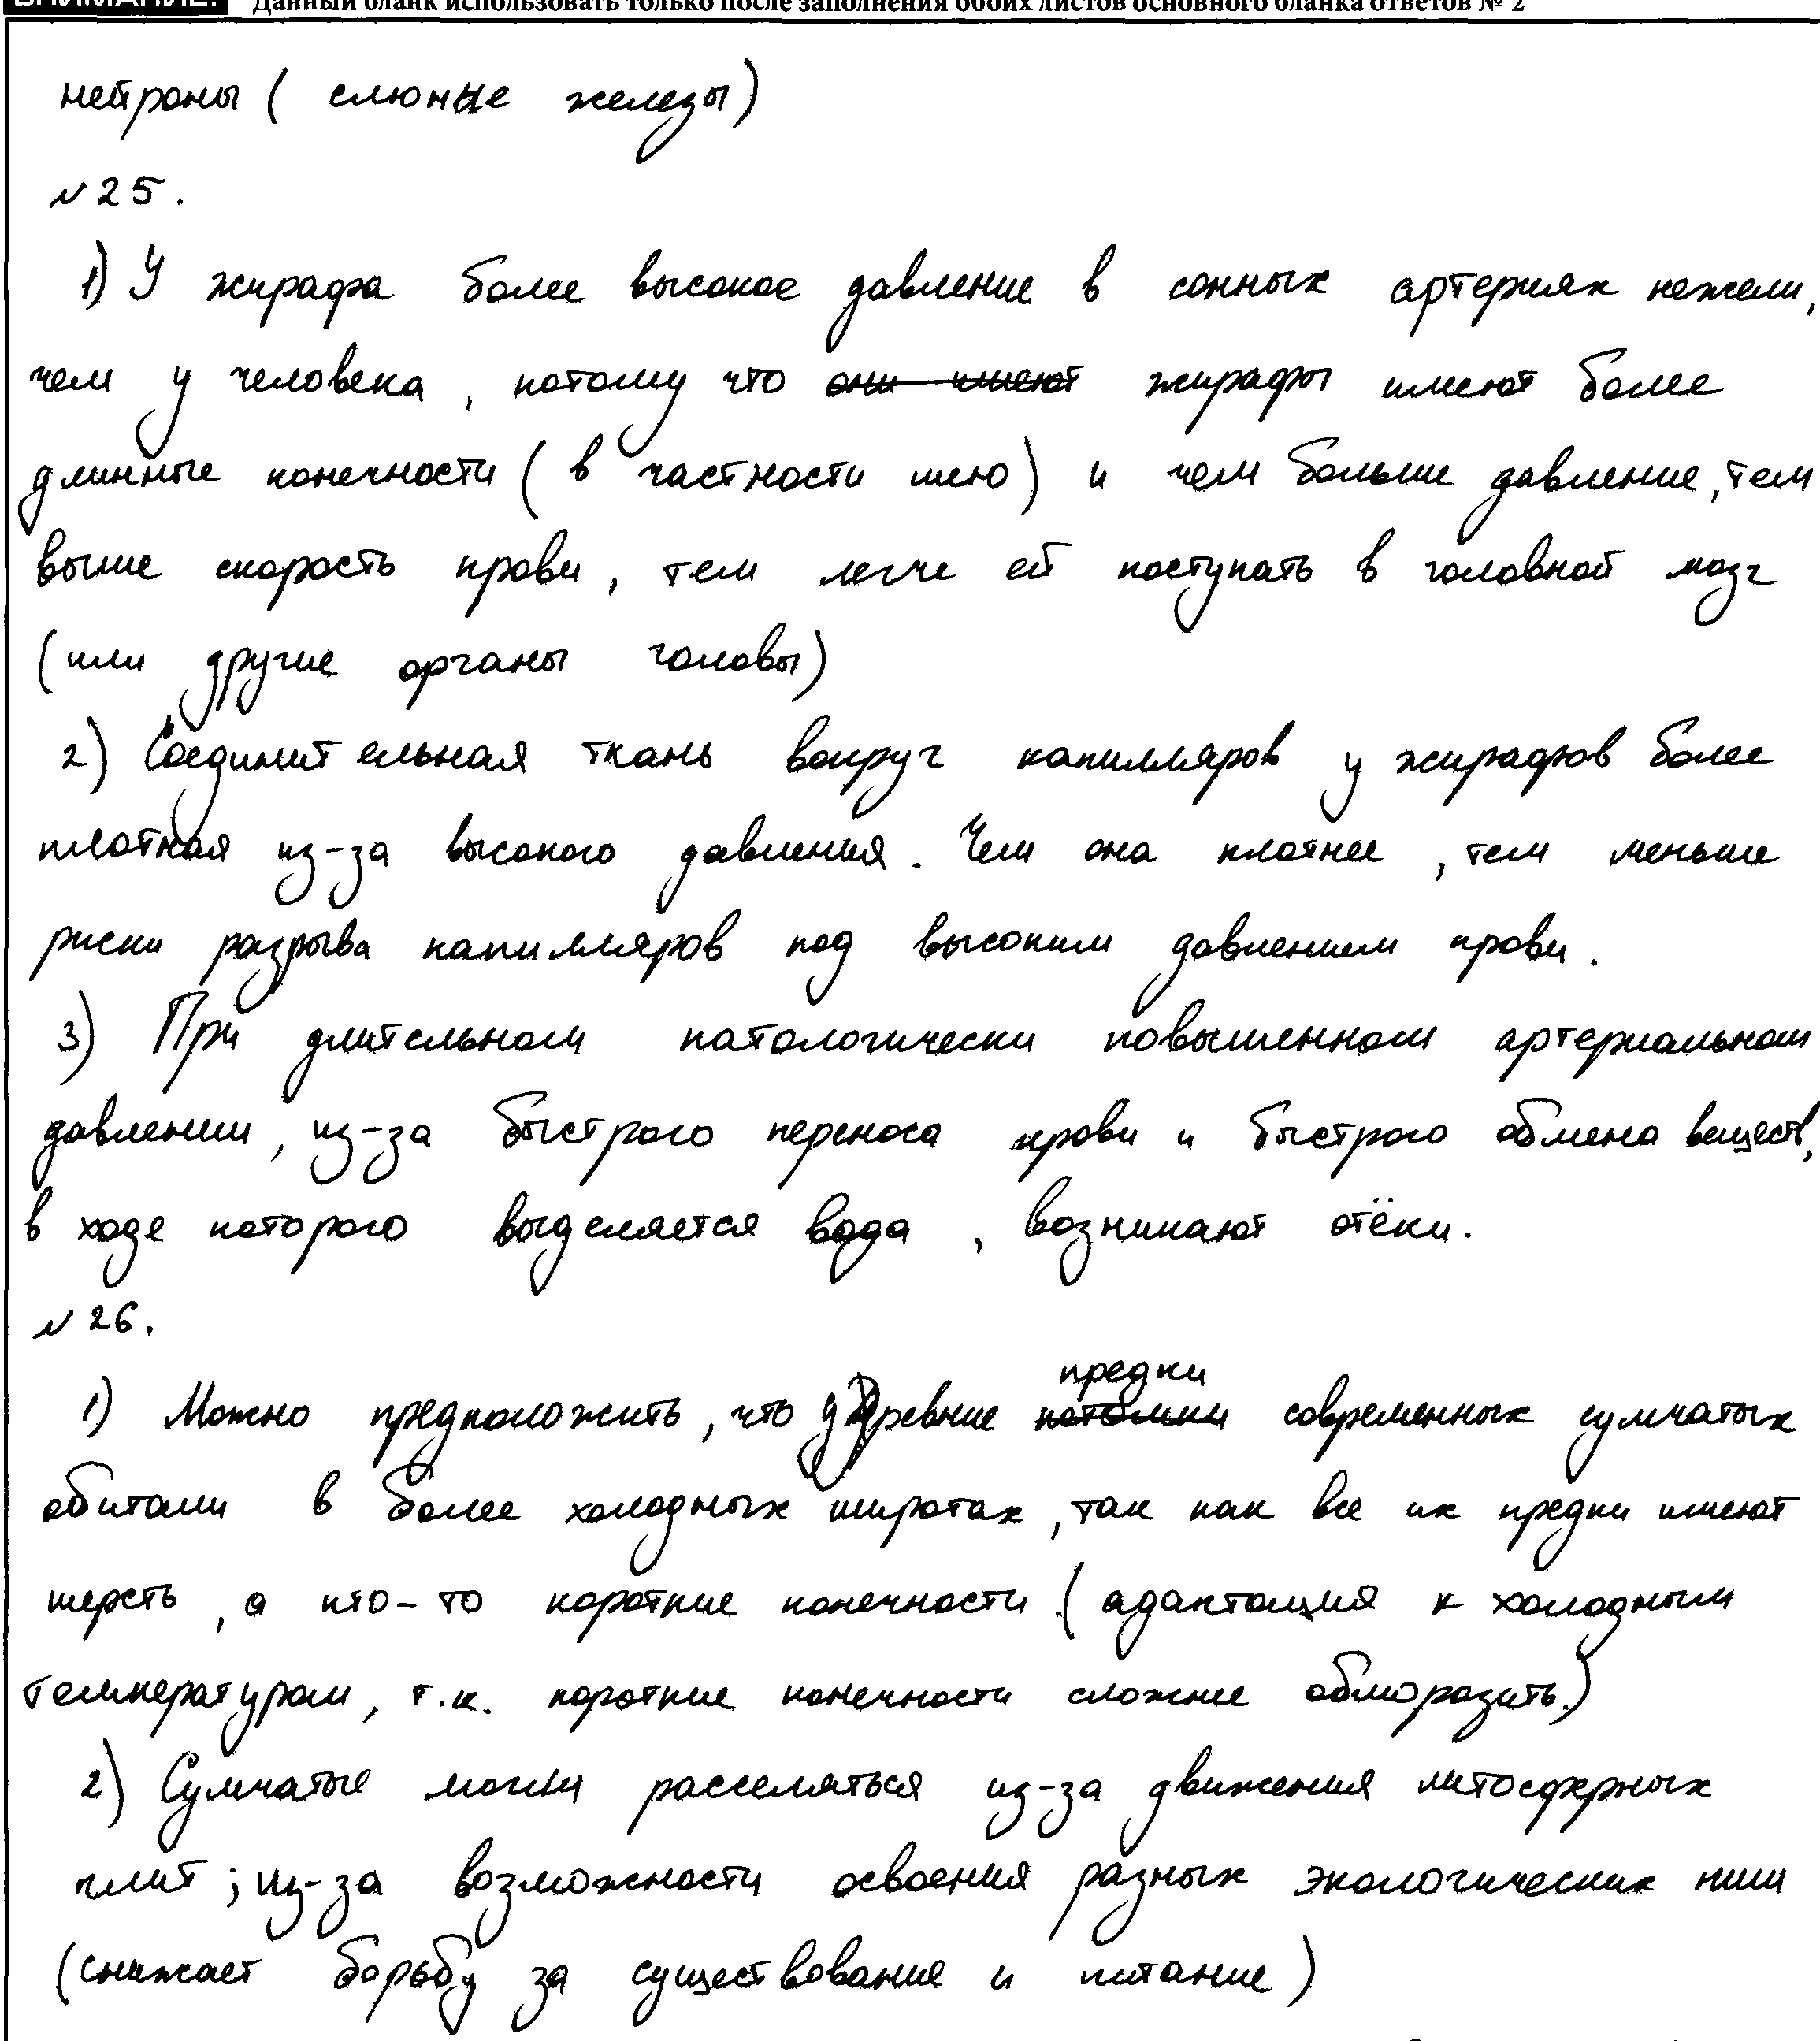 ВНИМАНИЕ! Данный бланк использовать только после заполнения обоих листов основного бланка ответов № 2
нейроны ( слюнные железы)
№ 25.
1) У жирафа более высокое давление в сонных артериях нежели,
чем у человека, потому что они имеют жирафы имеют более
длинные конечности ( в частности шею) и чем больше давление, тем
выше скорость крови, тем легче ей поступать в головной мозг
(или другие органы головы)
2) Соединительная ткань вокруг капилляров у жирафов более
плотная из-за высокого давления. Чем она плотнее, тем меньше
риски разрыва капилляров под высоким давлением крови.
3) При длительном патологически повышенном артериальном
давлении, из-за быстрого переноса крови и быстрого обмена веществ,
в ходе которого выделяется вода, возникают отёки.
№ 26.
1) Можно предположить, что древние потомки предки современных сумчатых
обитали в более холодных широтах, так как все их предки имеют
шерсть, а кто-то короткие конечности (адаптация к холодным
температурам, т.к. короткие конечности сложнее обморозить.)
2) Сумчатые могли расселяться из-за движения литосферных
плит; из-за возможности освоения разных экологических ниш
(снижает борьбу за существование и питание)